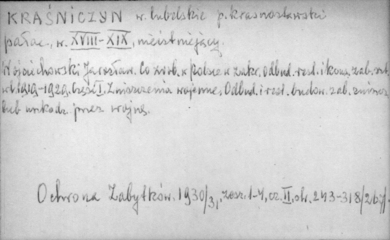 KRAŚNICZYN w. lubelskie p. krasnostawski
pałac, w. XVIII-XIX, nieistniejący.
Wojciechowski Jarosław. Co zrob. w Polsce w zakr. Odbud. rest. i kons. zab. arch.
w l. 1919-1929, część I. Zniszczenia wojenne, Odbud. i rest. budow. zab. zniszcz.
lub uszkodz. przez wojnę.
Ochrona Zabytków. 1930/31, zesz. 1-4, cz. II, str. 243-318